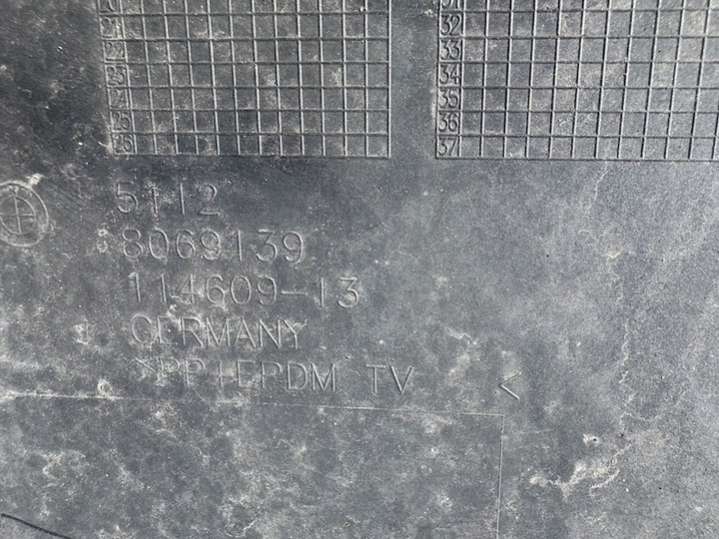 21
22
23
24
25
26
31
32
33
34
35
36
37
5112
8069139
114609-13
GERMANY
>PP+EPDM TV <